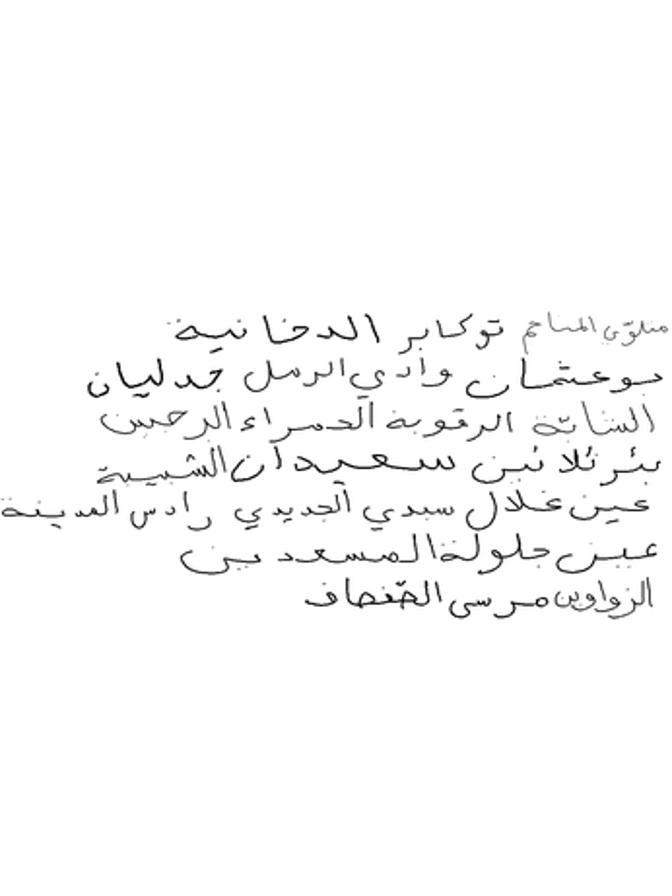 منلوّي المناجم توكابر الدخانية
بوعثمان وادي الرمل جدليان
الشابّة الرقوبة الحمراء الرحمين
بئر ثلاثين سعيدان الشبيبة
عين غلال سيدي الجديدي رادس المدينة
عين جلولة المسعدين
الزواوين مرسى القفصاف